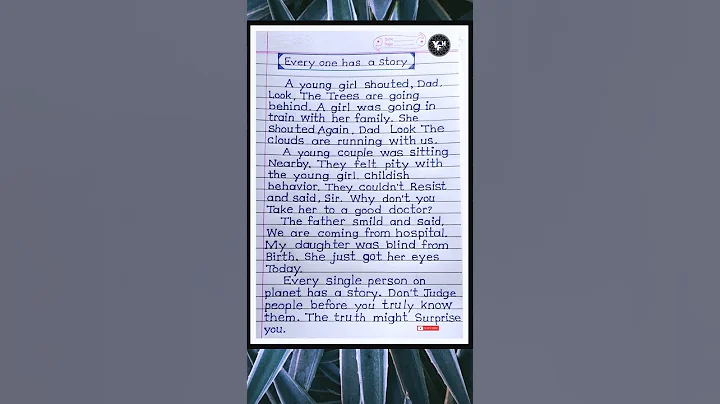 Every one has a story
A young girl shouted, Dad.
Look, The Trees are going
behind. A girl was going in
train with her family. She
Shouted Again, Dad Look The
Clouds are running with us.
A young couple was sitting
Nearby. They felt pity with
the young girl. Childish
behavior. They couldn't Resist
and said, Sir. Why don't you
Take her to a good doctor?
The father smild and said,
We are coming from hospital.
My daughter was blind from
Birth. She just got her eyes
Today.
Every single person on
planet has a story. Don't Judge
people before you truly know
them. The truth might Surprise
you.